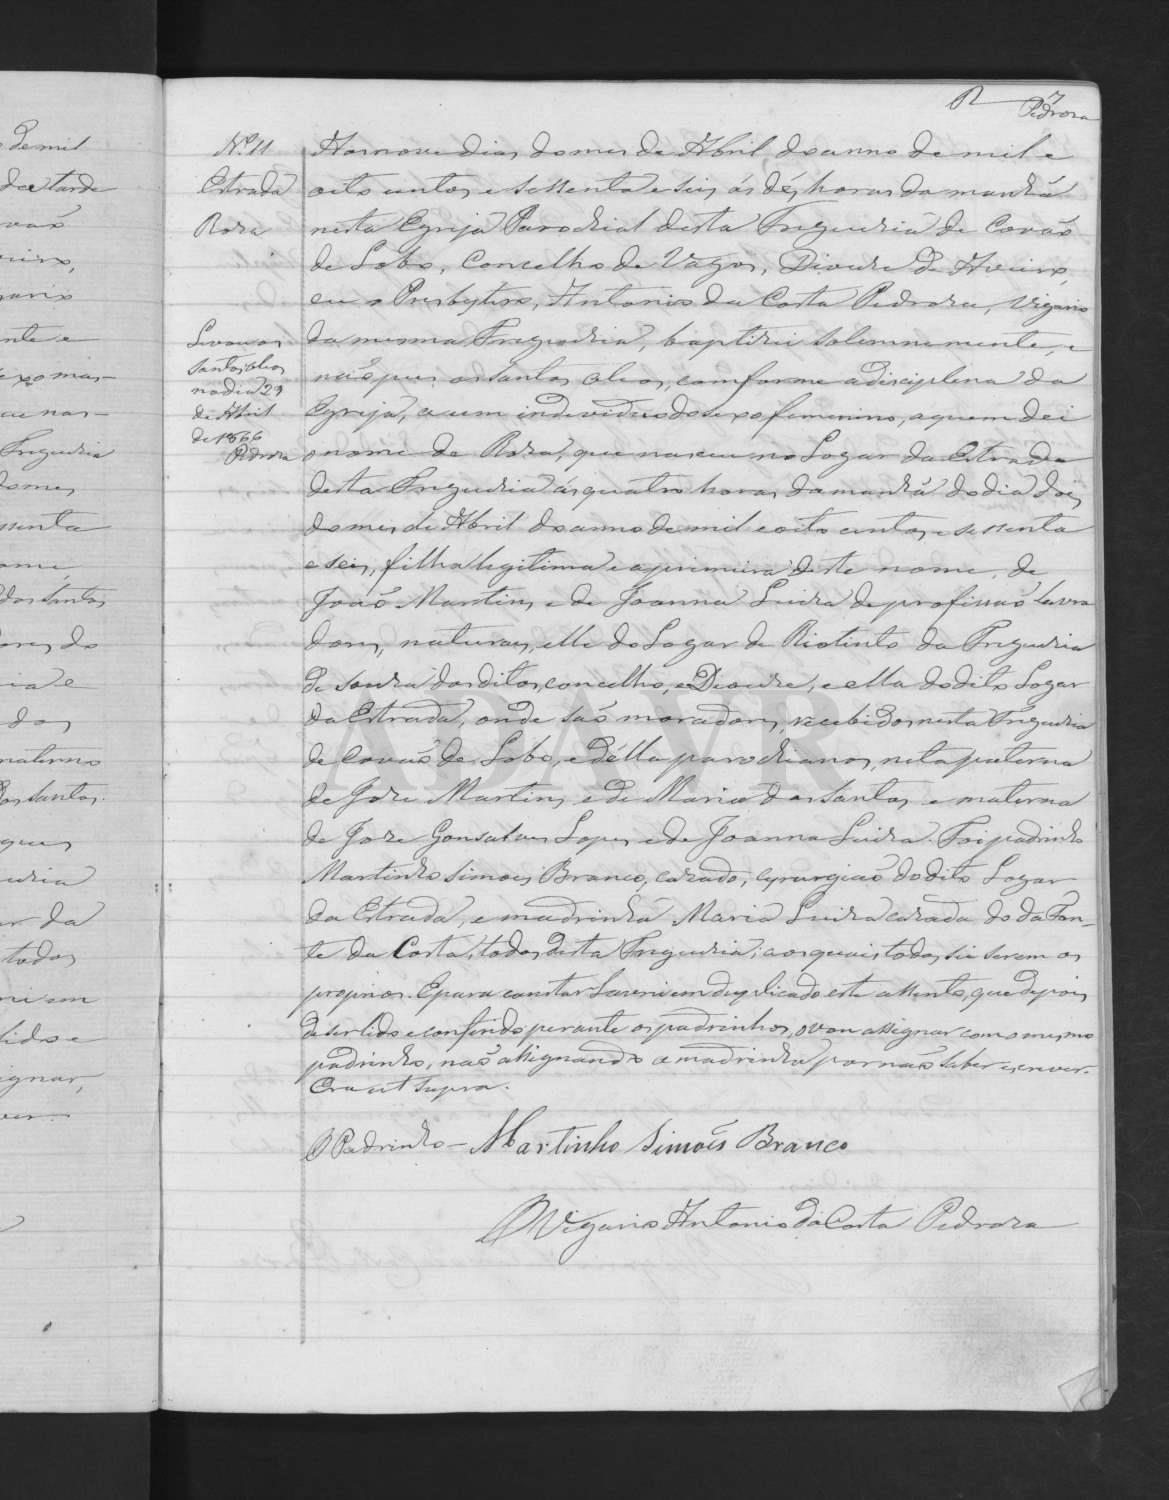 7
Pedroza
Nº 11
Estrada
Roza
Levou os
Santos oleos
no dia 29
de Abril
de 1866
Pedroza
Aos nove dias do mes de Abril do anno de mil e
oito centos e sessenta e seis ás dés horas da manhã
nesta Egreja Parochial desta Freguezia de Covaõ
de Lobo, Concelho de Vagos, Diocese de Aveiro,
eu o Presbytero, Antonio da Costa Pedroza, Vigario
da mesma Freguezia, baptizei solemnemente, e
naõ pus os santos oleos, comforme a disciplina da
Egreja, a um individuo do sexo femenino, a quem dei
o nome de Roza, que nasceu no Logar da Estrada
desta Freguezia ás quatro horas da manhã do dia dois
do mes de Abril do anno de mil e oito centos e sessenta
e seis, filha legitima e a primeira deste nome, de
Joaõ Martins e de Joanna Luiza de profissaõ lavra
dores, naturaes, elle do Logar de Riotinto da Freguezia
de Souza dos ditos, concelho, e Diocese, e ella do dito Logar
da Estrada, onde saõ moradores, recebidos nesta Freguezia
de Covaõ de Lobo, e d'élla parochianos, neta paterna
de Joze Martins e de Maria dos Santos e materna
de Joze Gonsalves Lopes e de Joanna Luiza. Foi padrinho
Martinho Simoes Branco, cazado, cyrurgiaõ do dito Logar
da Estrada, e madrinha Maria Luiza cazada do da Fon-
te da Costa, todos desta Freguezia; aos quais todos sei serem os
proprios. E para constar Lavrei em duplicado este assento, que depois
de ser lido e conferido perante os padrinhos, o vou assignar com o mesmo
padrinho, naõ assignando a madrinha por naõ saber escrever.
Era ut supra.
O Padrinho - Martinho Simoẽs Branco
O Vigario Antonio da Costa Pedroza
ADAVR